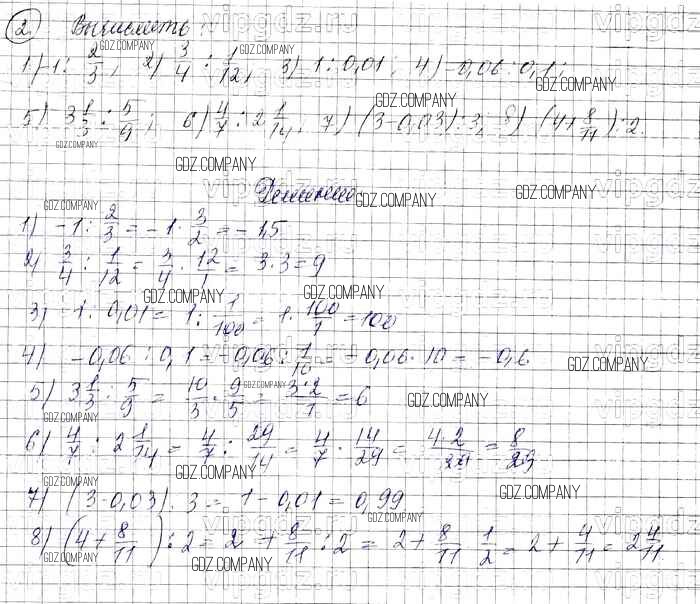 2. Вычислить:
1) -1 : 2/3, 2) 3/4 : 1/12, 3) 1 : 0,01; 4) -0,06 : 0,1;
5) 3 1/3 : 5/9; 6) 4/7 : 2 1/14, 7) (3-0,03) : 3; 8) (4+8/11) : 2.
Решение
1) -1 : 2/3 = -1 · 3/2 = -1,5
2) 3/4 : 1/12 = 3/4 · 12/1 = 3·3=9
3) -1 : 0,01 = 1 : 1/100 = 1 · 100/1 = 100
4) -0,06 : 0,1 = -0,06 : 1/10 = -0,06 · 10 = -0,6
5) 3 1/3 : 5/9 = 10/3 · 9/5 = 3·2/1 = 6
6) 4/7 : 2 1/14 = 4/7 : 29/14 = 4/7 · 14/29 = 4·2/29 = 8/29
7) (3-0,03) : 3 = 1-0,01 = 0,99
8) (4+8/11) : 2 = 2 + 8/11 : 2 = 2 + 8/11 · 1/2 = 2 + 4/11 = 2 4/11
GDZ.COMPANY
vipgdz.ru